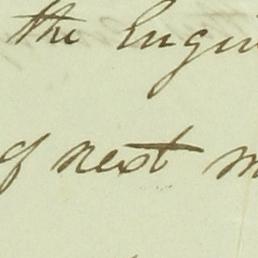 the Engin
of next m